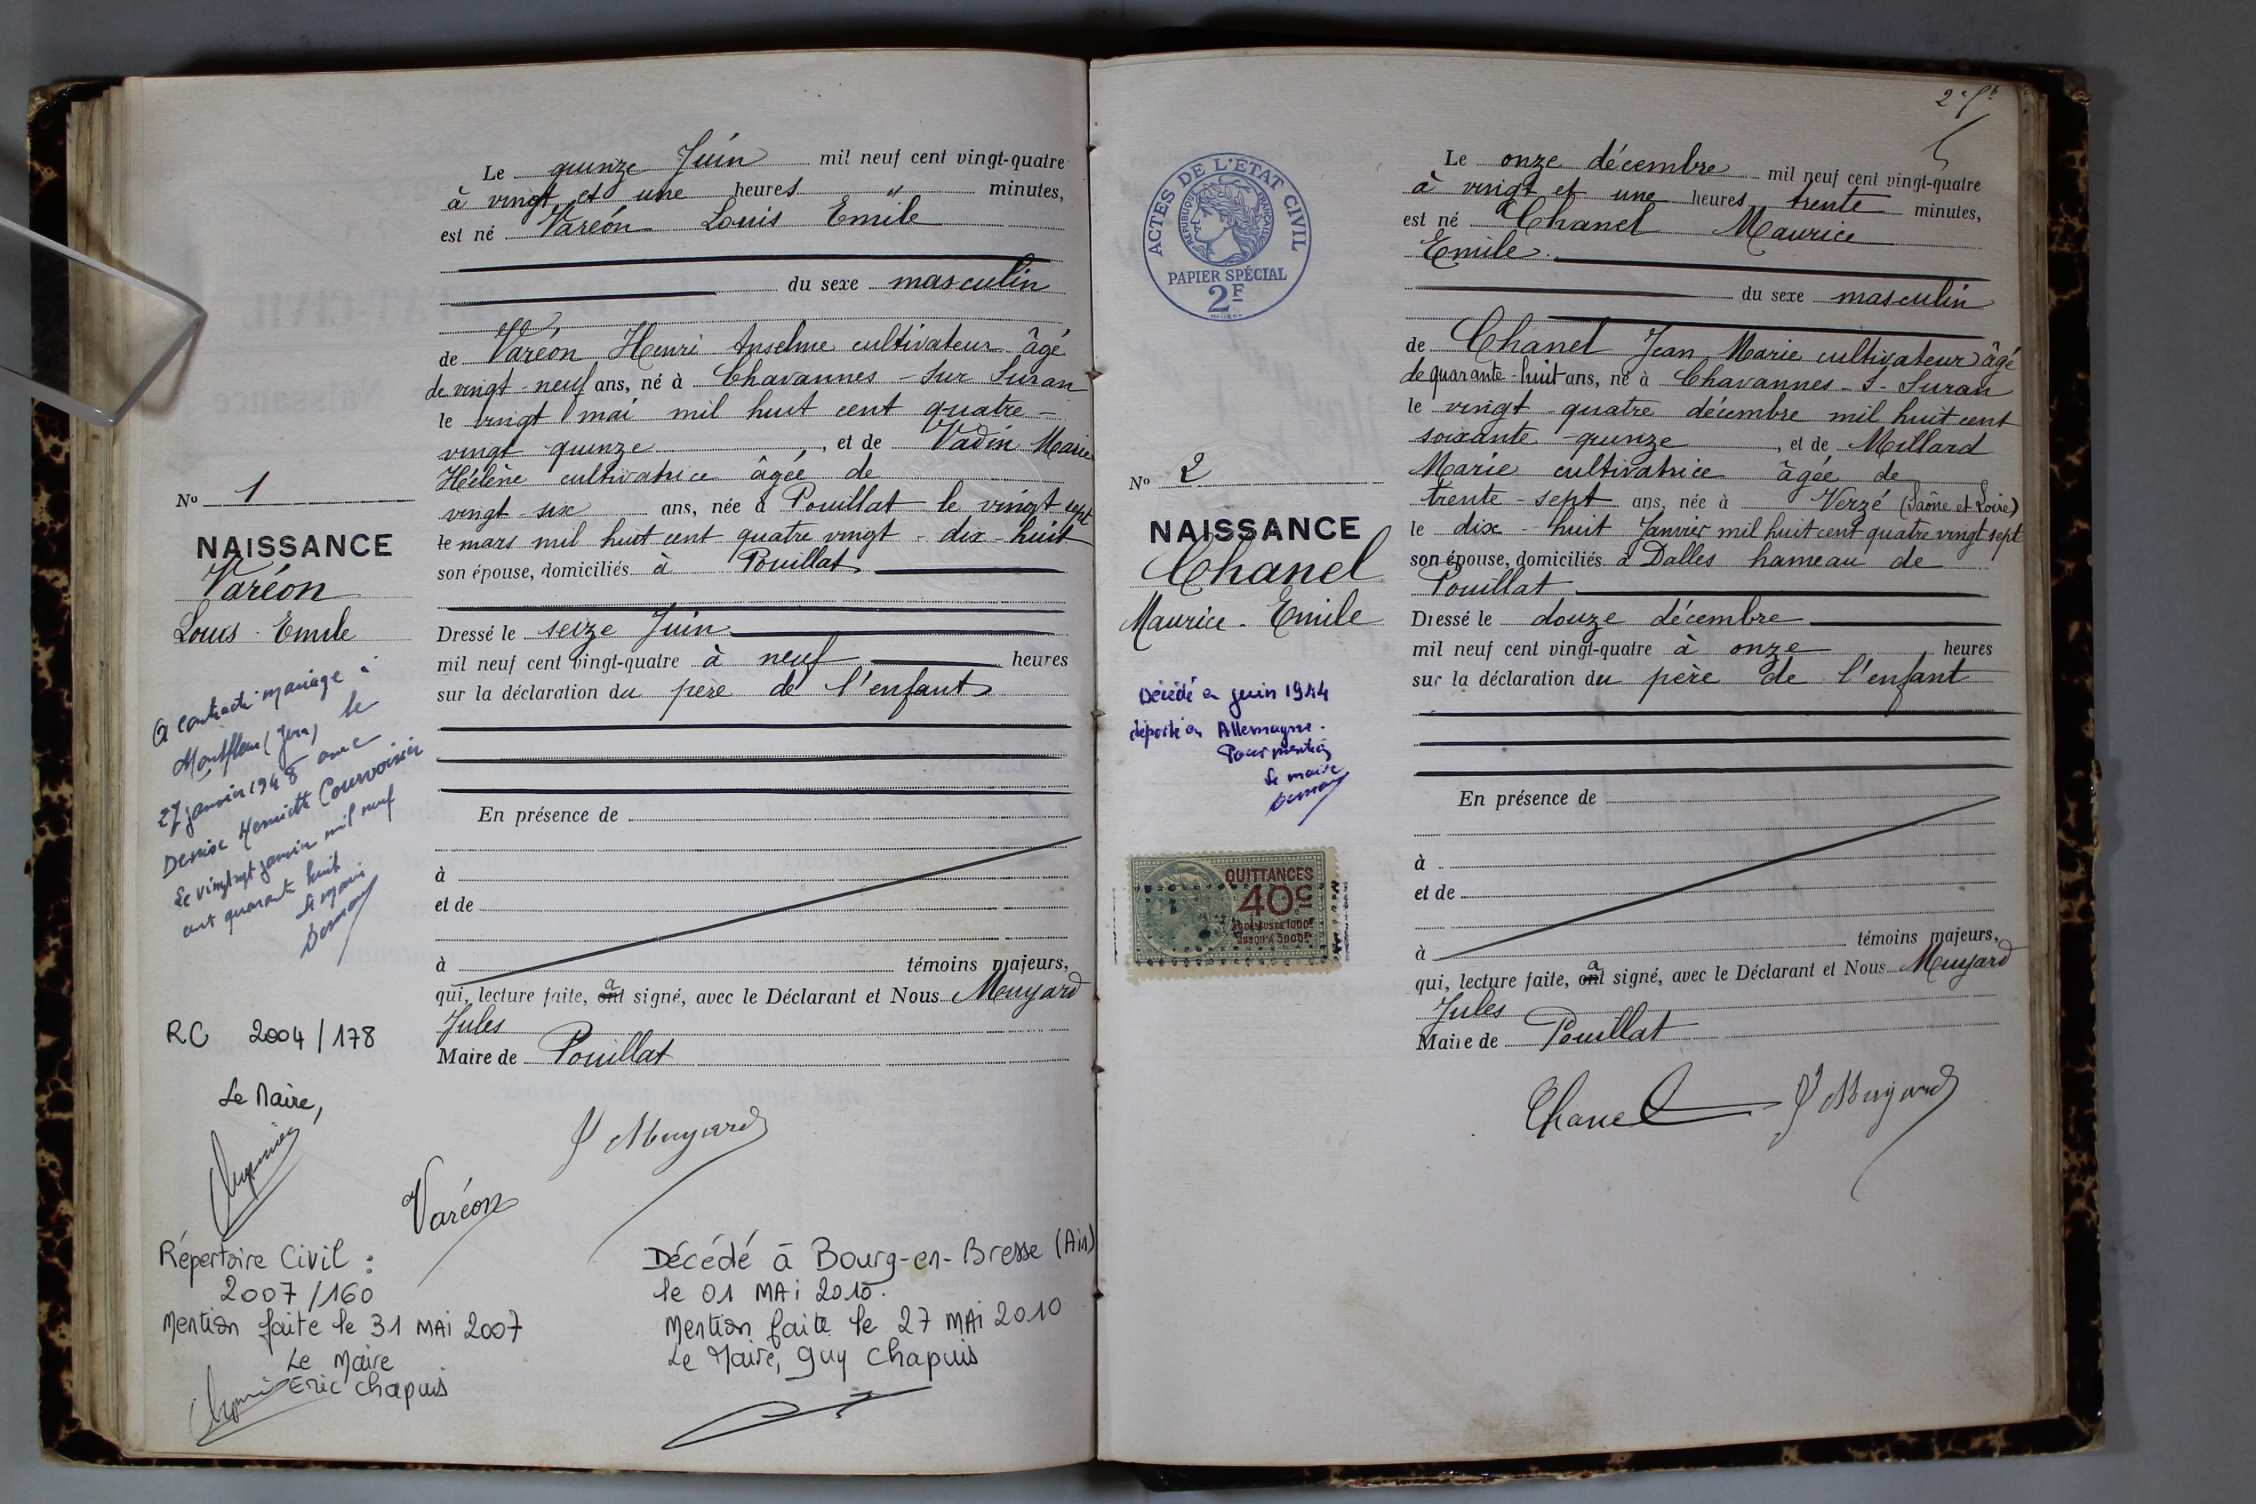 Le quinze Juin mil neuf cent vingt-quatre
à vingt et une heures " minutes,
est né Varéon Louis Emile
du sexe masculin
de Varéon Henri Anselme cultivateur âgé
de vingt-neuf ans, né à Chavannes-sur Suran
le vingt mai mil huit cent quatre-
vingt quinze, et de Vadin Marie
Hélène cultivatrice âgée de
vingt-six ans, née à Pouillat le vingt sept
le mars mil huit cent quatre vingt-dix-huit
son épouse, domiciliés à Pouillat
Dressé le seize Juin
mil neuf cent vingt-quatre à neuf heures
sur la déclaration du père de l'enfant
En présence de
à
et de
à témoins majeurs,
qui, lecture faite, ont a signé, avec le Déclarant et Nous Muyard
Jules
Maire de Pouillat
J Muyard
Varéon
No 1
NAISSANCE
Varéon
Louis Emile
A contracté mariage à
Montfleur (Jura) le
27 janvier 1948 avec
Denise Henriette Courvoisier
Le vingt sept janvier mil neuf
cent quarante huit
Le maire
RC 2004/178
Le Maire,
Répertoire Civil :
2007/160
Mention faite le 31 MAi 2007
Le Maire
Eric Chapuis
Décédé à Bourg-en-Bresse (Ain)
le 01 MAi 2010.
Mention faite le 27 MAi 2010
Le Maire, Guy Chapuis
ACTES DE L'ETAT CIVIL
REPUBLIQUE FRANÇAISE
PAPIER SPÉCIAL
2F
Le onze décembre mil neuf cent vingt-quatre
à vingt et une heures trente minutes,
est né Chanel Maurice
Emile
du sexe masculin
de Chanel Jean Marie cultivateur âgé
de quarante-huit ans, né à Chavannes-s-Suran
le vingt-quatre décembre mil huit cent
soixante-quinze, et de Millard
Marie cultivatrice âgée de
trente-sept ans, née à Verzé (Saône et Loire)
le dix-huit Janvier mil huit cent quatre vingt sept
son épouse, domiciliés à Dalles hameau de
Pouillat
Dressé le douze décembre
mil neuf cent vingt-quatre à onze heures
sur la déclaration du père de l'enfant
En présence de
à
et de
à témoins majeurs,
qui, lecture faite, ont a signé, avec le Déclarant et Nous Muyard
Jules
Maire de Pouillat
Chanel J Muyard
No 2
NAISSANCE
Chanel
Maurice-Emile
Décédé en juin 1944
déporté en Allemagne.
Pour mention
Le maire
QUITTANCES
40c
AU-DESSUS DE 1000F
JUSQU'À 3000F